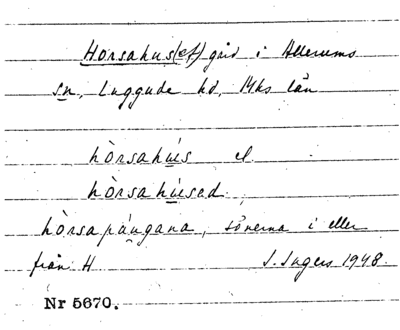 Horsahus(et) gård i Allerums
sn, Luggude hd, Mhs län
hòrsahúis el.
hòrsahúised
hòrsapáugana, sönerna i eller
från H I. Ingers 1948.
Nr 5670.